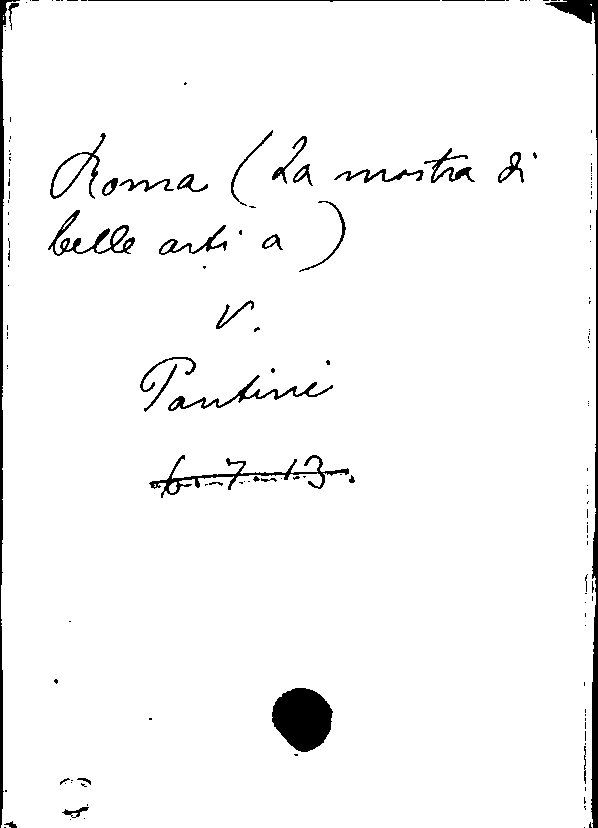 Roma (La mostra di
belle arti a)
V.
Pantini
6.7.13.